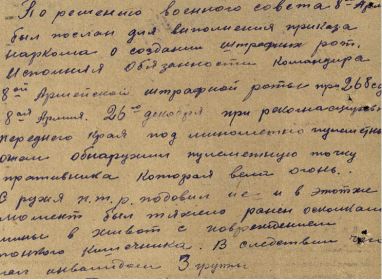 По решению военного совета 8й Арм
был послан для выполнения приказа
наркома о создании штрафных рот.
Исполняя обязанности командира
8ой Армейской штрафной роты при 268
8ая Армия. 26го декабря при рекогнасцировке
переднего края под минометно пулеметным
огнем обнаружил пулеметную точку
противника которая вела огонь.
С ружья подовил ее и в этот же
момент был тяжело ранен осколками
мины в живот с повреждением
тонкого кишечника. В следствии чего
инвалидом 3 групы